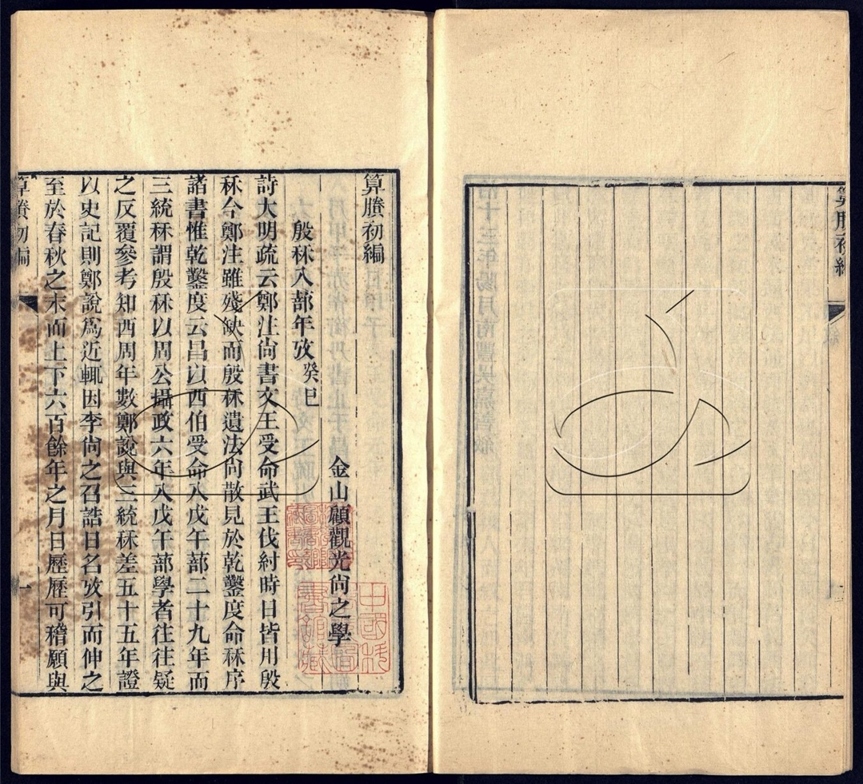 算賸初編
算賸初編
殷秝入蔀年攷癸巳
金山顧觀光尚之學
詩大明疏云鄭注尚書文王受命武王伐紂時日皆用殷
秝今鄭注雖殘缺而殷秝遺法尚散見於乾鑿度命秝序
諸書惟乾鑿度云昌以西伯受命入戊午蔀二十九年而
三統秝謂殷秝以周公攝政六年入戊午蔀學者往往疑
之反覆參考知西周年數鄭說與三統秝差五十五年證
以史記則鄭說爲近輒因李尚之召誥日名攷引而伸之
至於春秋之末而上下六百餘年之月日歷歷可稽願與
算賸初編
一